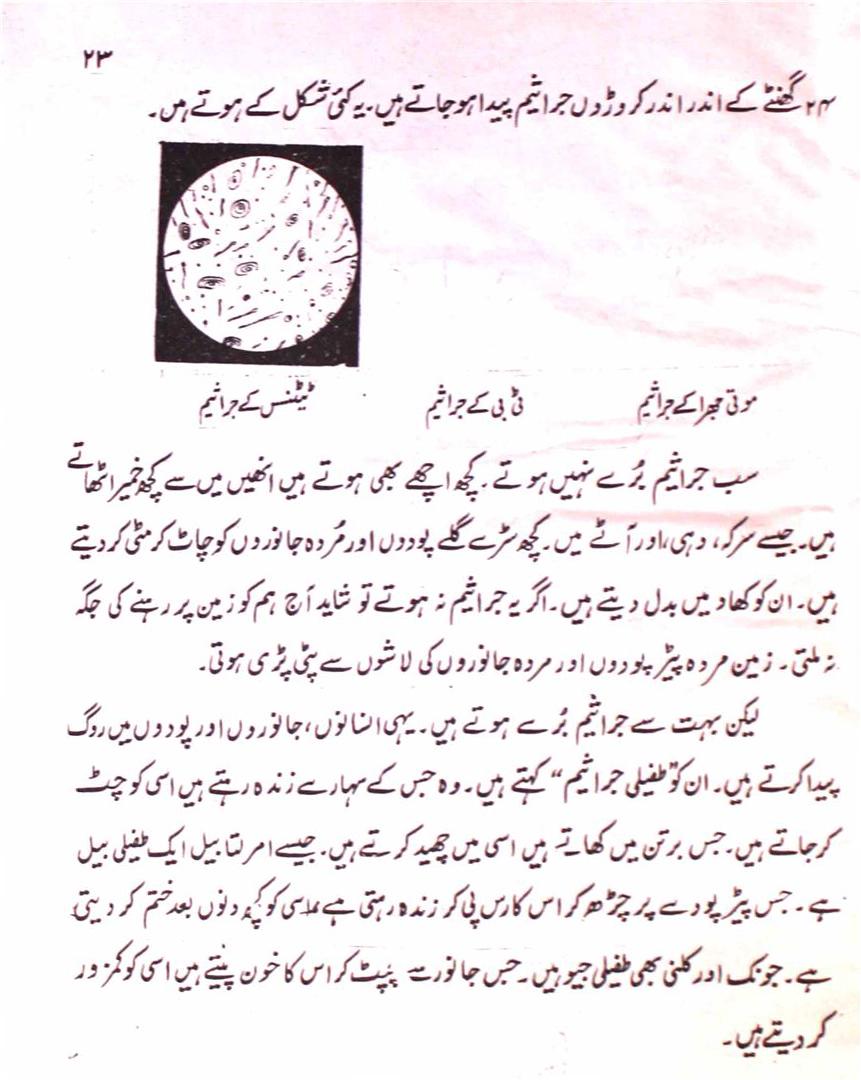 ۲۳
۲۴ گھنٹے کے اندر اندر کروڑوں جراثیم پیدا ہو جاتے ہیں۔ یہ کئی شکل کے ہوتے ہیں۔
موتی جھرا کے جراثیم ٹی بی کے جراثیم ٹیٹنس کے جراثیم
سب جراثیم بُرے نہیں ہوتے۔ کچھ اچھے بھی ہوتے ہیں انھیں میں سے کچھ خمیر اٹھاتے
ہیں۔ جیسے سرکہ، دہی، اور آٹے میں۔ کچھ سڑے گلے پودوں اور مُردہ جانوروں کو چاٹ کر مٹی کر دیتے
ہیں۔ ان کو کھاد میں بدل دیتے ہیں۔ اگر یہ جراثیم نہ ہوتے تو شاید آج ہم کو زمین پر رہنے کی جگہ
نہ ملتی۔ زمین مردہ پیڑ پودوں اور مردہ جانوروں کی لاشوں سے پٹی پڑی ہوتی۔
لیکن بہت سے جراثیم بُرے ہوتے ہیں۔ یہی انسانوں، جانوروں اور پودوں میں روگ
پیدا کرتے ہیں۔ ان کو "طفیلی جراثیم" کہتے ہیں۔ وہ جس کے سہارے زندہ رہتے ہیں اسی کو چٹ
کر جاتے ہیں۔ جس برتن میں کھاتے ہیں اسی میں چھید کرتے ہیں۔ جیسے امر لتا بیل ایک طفیلی بیل
ہے۔ جس پیڑ پودے پر چڑھ کر اس کا رس پی کر زندہ رہتی ہے اسی کو کچھ دنوں بعد ختم کر دیتی
ہے۔ جونک اور کلنی بھی طفیلی جیو ہیں۔ جس جانور سے چپٹ کر اس کا خون پیتے ہیں اسی کو کمزور
کر دیتے ہیں۔